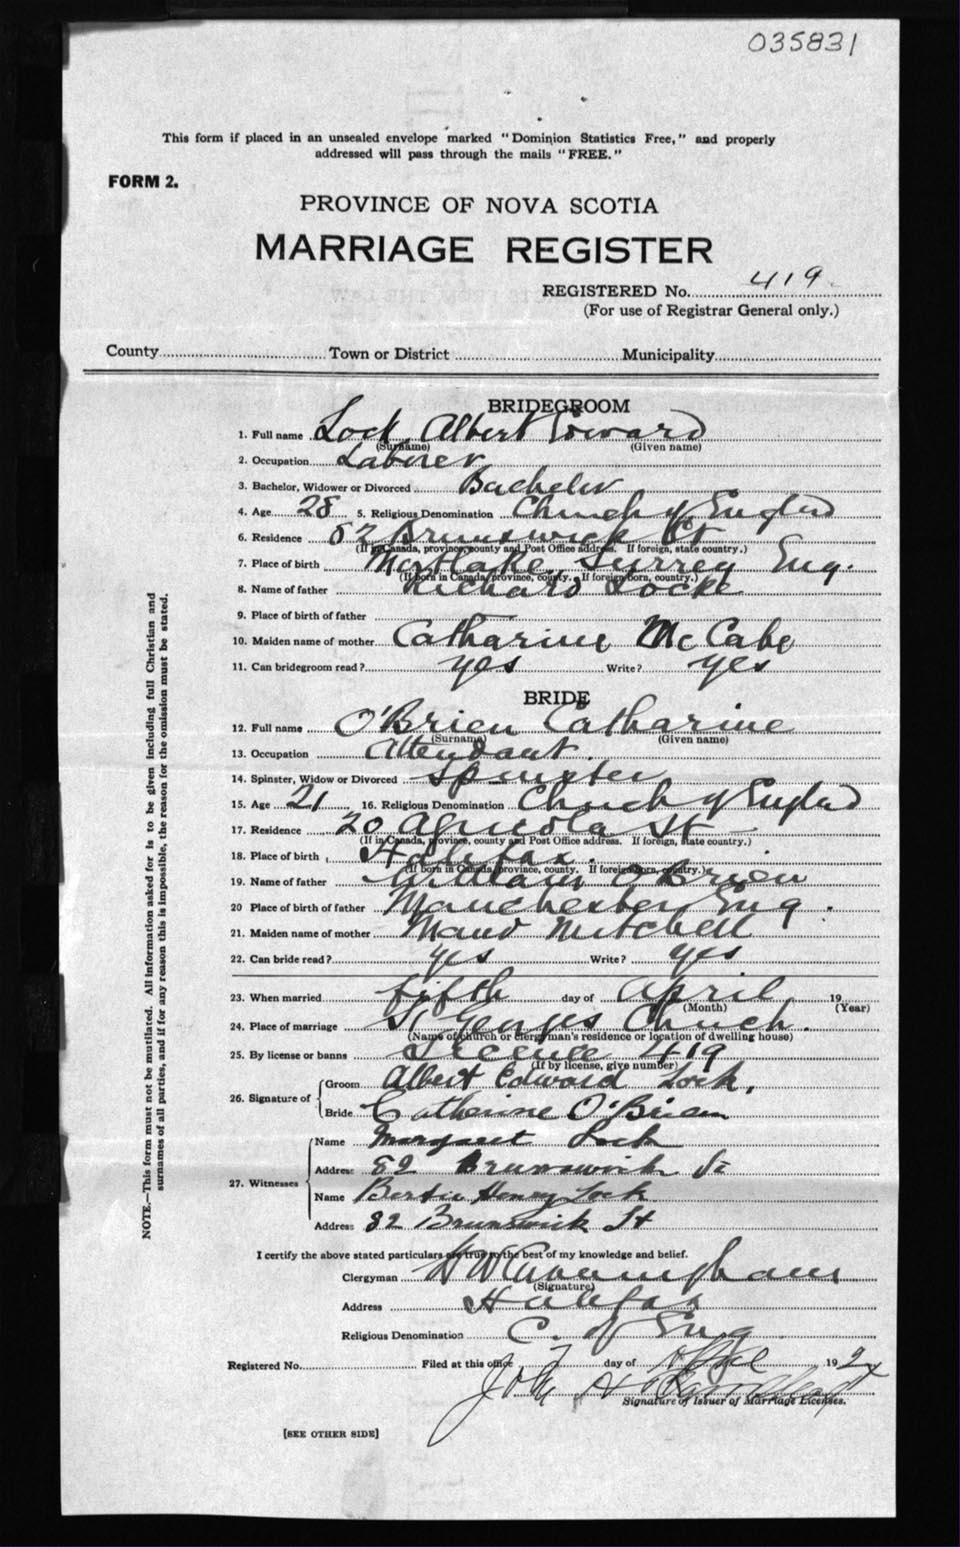 035831
This form if placed in an unsealed envelope marked "Dominion Statistics Free," and properly
addressed will pass through the mails "FREE."
FORM 2.
PROVINCE OF NOVA SCOTIA
MARRIAGE REGISTER
REGISTERED No. 419
(For use of Registrar General only.)
County Town or District Municipality
BRIDEGROOM
1. Full name Lock Albert Edward
(Surname) (Given name)
2. Occupation Laborer
3. Bachelor, Widower or Divorced Bachelor
4. Age 28 5. Religious Denomination Church of England
6. Residence 82 Brunswick St
(If in Canada, province, county and Post Office address. If foreign, state country.)
7. Place of birth Mortlake Surrey Eng.
(If born in Canada, province, county. If foreign born, country.)
8. Name of father Richard Locke
9. Place of birth of father
10. Maiden name of mother Catharine McCabe
11. Can bridegroom read? yes Write? yes
BRIDE
12. Full name O'Brien Catharine
(Surname) (Given name)
13. Occupation Attendant
14. Spinster, Widow or Divorced Spinster
15. Age 21 16. Religious Denomination Church of England
17. Residence 20 Agricola St
(If in Canada, province, county and Post Office address. If foreign, state country.)
18. Place of birth Halifax.
(If born in Canada, province, county. If foreign born, country.)
19. Name of father William O'Brien
20 Place of birth of father Manchester Eng.
21. Maiden name of mother Maud Mitchell
22. Can bride read? yes Write? yes
23. When married fifth day of April 19
(Month) (Year)
24. Place of marriage St Georges Church.
(Name of church or clergyman's residence or location of dwelling house)
25. By license or banns License 419
(If by license, give number)
26. Signature of Groom Albert Edward Lock.
Bride Catherine O'Brien
27. Witnesses Name Margaret Lock
Address 82 Brunswick St
Name Bertie Henry Lock
Address 82 Brunswick St
I certify the above stated particulars are true to the best of my knowledge and belief.
Clergyman H W Cunningham
(Signature)
Address Halifax
Religious Denomination C. of Eng
Registered No. Filed at this office 7 day of 192
Signature of Issuer of Marriage Licenses.
[SEE OTHER SIDE]
NOTE.—This form must not be mutilated. All information asked for is to be given including full Christian and
surnames of all parties, and if for any reason this is impossible, the reason for the omission must be stated.